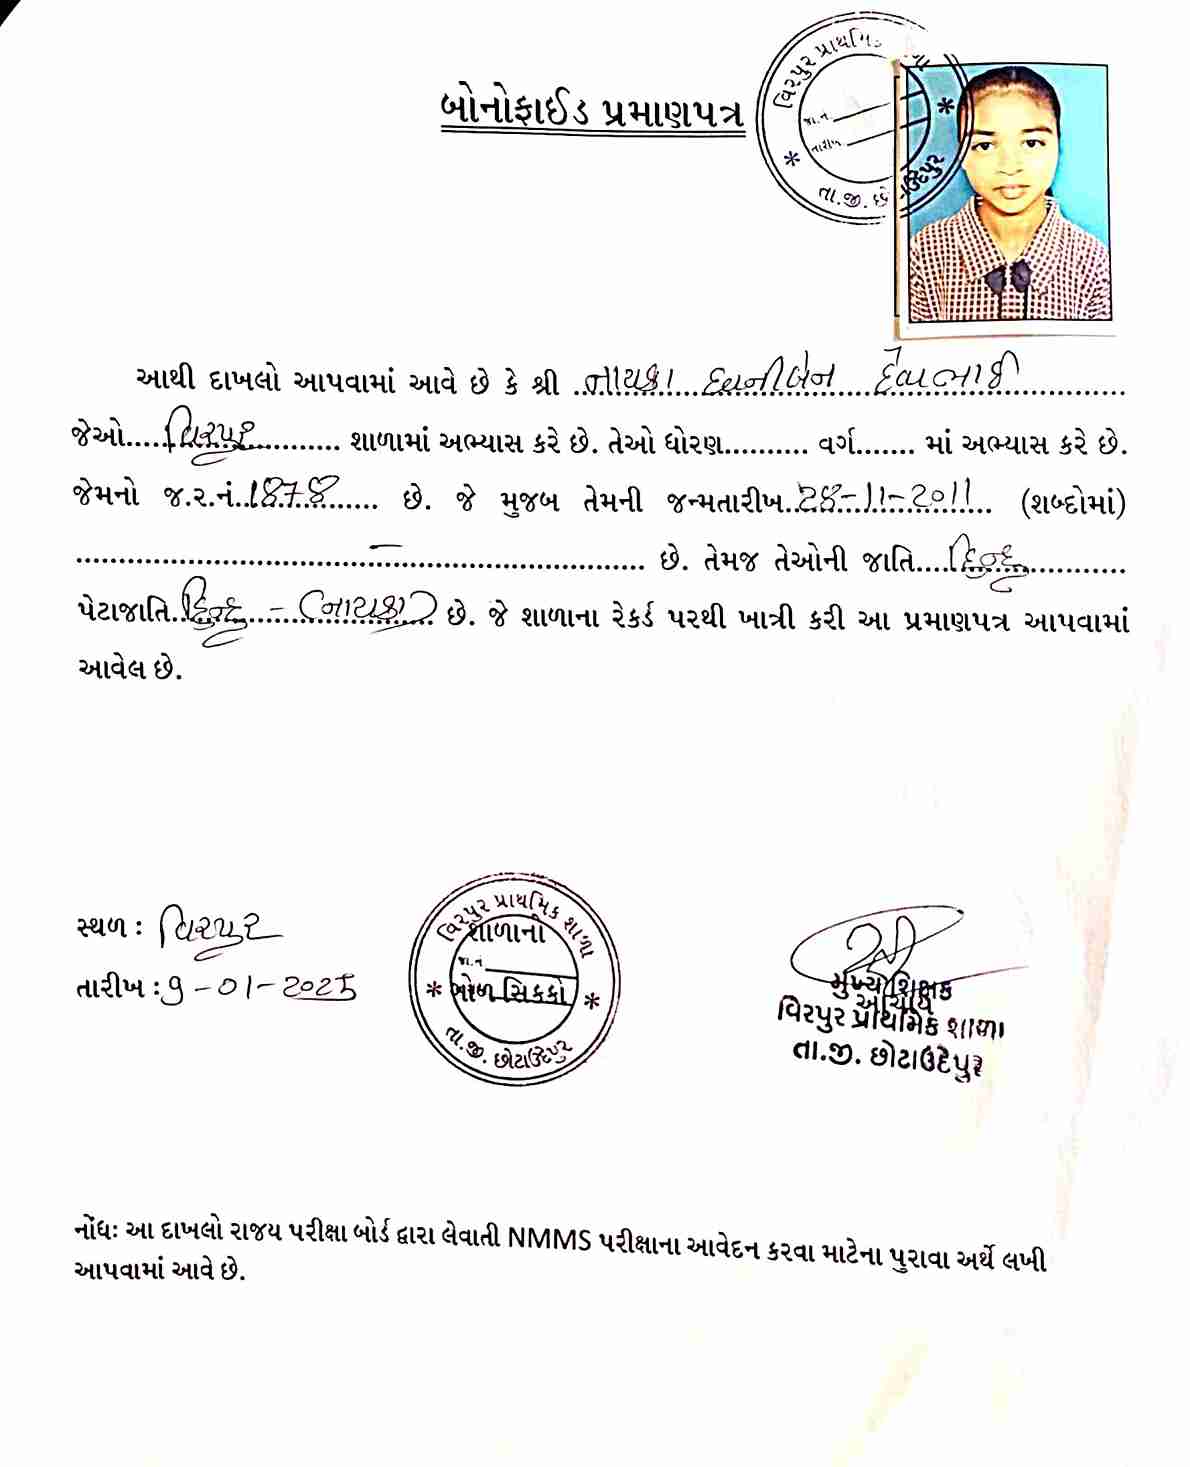 બોનોફાઈડ પ્રમાણપત્ર
વિરપુર પ્રાથમિક
જા.નં.
તારીખ
તા.જી. છોટાઉદેપુર
આથી દાખલો આપવામાં આવે છે કે શ્રી ..નાયકા....ધ્વનીબેન....દેવાભાઈ......
જેઓ.....વિરપુર............ શાળામાં અભ્યાસ કરે છે. તેઓ ધોરણ.......... વર્ગ....... માં અભ્યાસ કરે છે.
જેમનો જ.ર.નં..1878...... છે. જે મુજબ તેમની જન્મતારીખ..28-11-2011... (શબ્દોમાં)
.................................—........................... છે. તેમજ તેઓની જાતિ....હિન્દુ............
પેટાજાતિ..હિન્દુ - (નાયકા) છે. જે શાળાના રેકર્ડ પરથી ખાત્રી કરી આ પ્રમાણપત્ર આપવામાં
આવેલ છે.
સ્થળ : વિરપુર
તારીખ : 9-01-2025
વિરપુર પ્રાથમિક શાળા
શાળાનો
જા.નં.
ગોળ સિક્કો
તા.જી. છોટાઉદેપુર
મુખ્ય શિક્ષક
આચાર્ય
વિરપુર પ્રાથમિક શાળા
તા.જી. છોટાઉદેપુર
નોંધઃ આ દાખલો રાજય પરીક્ષા બોર્ડ દ્વારા લેવાતી NMMS પરીક્ષાના આવેદન કરવા માટેના પુરાવા અર્થે લખી
આપવામાં આવે છે.